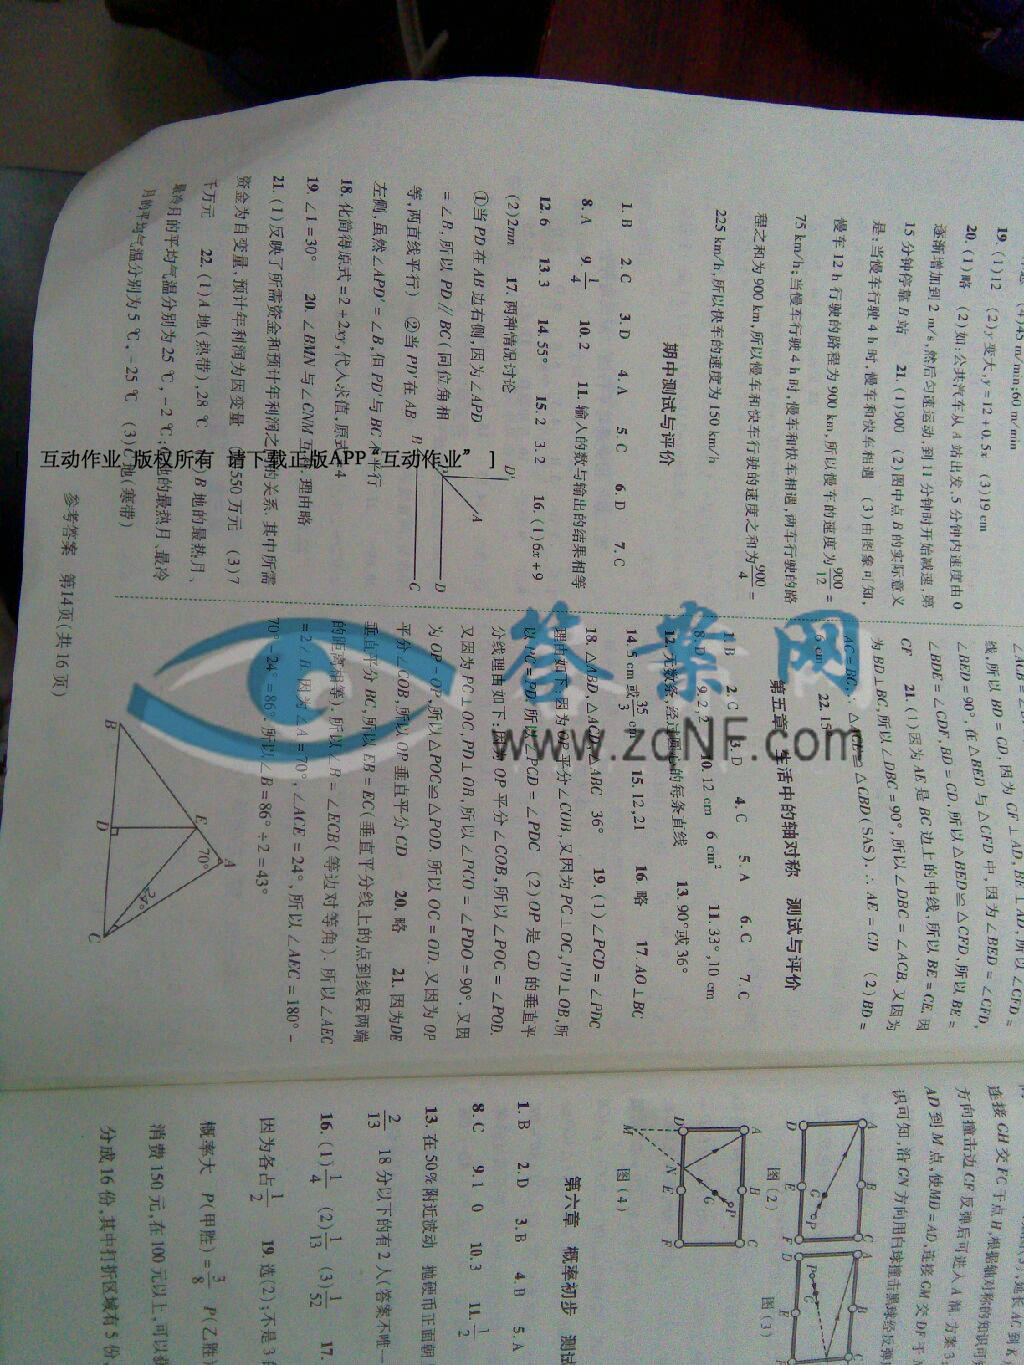 19. (1)12 (2)y变大,y=12+0.5x (3)19 cm
20. (1)略 (2)如:公共汽车从A站出发,5分钟内速度由0
逐渐增加到2 m/s,然后匀速运动,到11分钟时开始减速,第
15分钟停靠B站 21. (1)900 (2)图中点B的实际意义
是:当慢车行驶4 h时,慢车和快车相遇 (3)由图象可知,
慢车12 h行驶的路程为900 km,所以慢车的速度为900/12=
75 km/h;当慢车行驶4 h时,慢车和快车相遇,两车行驶的路
程之和为900 km,所以慢车和快车行驶的速度之和为900/4=
225 km/h,所以快车的速度为150 km/h
期中测试与评价
1. B 2. C 3. D 4. A 5. C 6. D 7. C
8. A 9. 1/4 10. 2 11. 输入的数与输出的结果相等
12. 6 13. 3 14. 55° 15. 2 3.2 16. (1)6x+9
(2)2mn 17. 两种情况讨论
①当PD在AB边右侧,因为∠APD
=∠B,所以PD∥BC(同位角相
等,两直线平行) ②当PD′在AB
左侧,虽然∠APD′=∠B,但PD′与BC不平行
18. 化简得原式=2+2xy,代入求值,原式=4
19. ∠1=30° 20. ∠BMN与∠CNM互补,理由略
21. (1)反映了所需资金和预计年利润之间的关系.其中所需
资金为自变量,预计年利润为因变量 (2)550万元 (3)7
千万元 22. (1)A地(热带),28 ℃ (2)B地的最热月、
最冷月的平均气温分别为25 ℃,-2 ℃;C地的最热月、最冷
月的平均气温分别为5 ℃,-25 ℃ (3)C地(寒带)
D′
A
B
D
C
线,所以BD=CD,因为CF⊥AD,BE⊥AD,所以∠CFD=
∠BED=90°,在△BED与△CFD中,因为∠BED=∠CFD,
∠BDE=∠CDF,BD=CD,所以△BED≌△CFD,所以BE=
CF 21. (1)因为AE是BC边上的中线,所以BE=CE,因
为BD⊥BC,所以∠DBC=90°,所以∠DBC=∠ACB.又因为
AC=BC,∴△ACE≌△CBD(SAS).∴AE=CD (2)BD=
6 cm 22. 15
第五章 生活中的轴对称 测试与评价
1. B 2. C 3. D 4. C 5. A 6. C 7. C
8. D 9. 2,2 10. 12 cm 6 cm² 11. 33°,10 cm
12. 无数条,经过圆心的每条直线 13. 90°或36°
14. 5 cm或35/3 cm 15. 12,21 16. 略 17. AO⊥BC
18. △ABD,△ACD,△ABC 36° 19. (1)∠PCD=∠PDC
理由如下:因为OP平分∠COB,又因为PC⊥OC,PD⊥OB,所
以PC=PD.所以∠PCD=∠PDC (2)OP是CD的垂直平
分线理由如下:因为OP平分∠COB,所以∠POC=∠POD.
又因为PC⊥OC,PD⊥OB,所以∠PCO=∠PDO=90°.又因
为OP=OP,所以△POC≌△POD.所以OC=OD.又因为OP
平分∠COB,所以OP垂直平分CD 20. 略 21. 因为DE
垂直平分BC,所以EB=EC(垂直平分线上的点到线段两端
的距离相等).所以∠B=∠ECB(等边对等角).所以∠AEC
=2∠B.因为∠A=70°,∠ACE=24°,所以∠AEC=180°-
70°-24°=86°.所以∠B=86°÷2=43°
A
70°
E
B
D
24°
C
参考答案 第14页(共16页)
连接GH交FC于点H,根据轴对称的知识可
方向撞击边CF反弹后可进入A洞.方案3
AD到M点,使MD=AD,连接GM交DF于
识可知,沿GN方向用白球撞击黑球经反弹
图(2)
图(3)
图(4)
第六章 概率初步 测试
1. B 2. D 3. B 4. B 5. A
8. C 9. 1 0 10. 3 11. 1/2
13. 在50%附近波动 抛硬币正面朝
2/13 18分以下的有2人(答案不唯一
16. (1)1/4 (2)1/13 (3)1/52 17.
因为各占1/2 19. 选(2);不是3
概率大 P(甲胜)=3/8 P(乙胜)
消费150元,在100元以上,可以获
分成16份,其中打折区域有5份,
互动作业 版权所有 请下载正版APP“互动作业” ]
答案网
www.zqNF.com